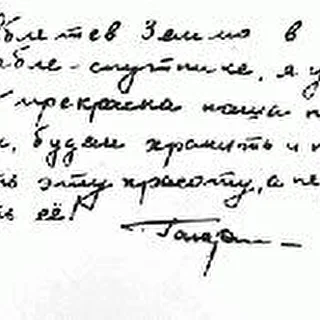 облетев Землю в
абле-спутнике, я у
прекрасна наша п
, будем хранить и п
ть эту красоту, а не
ть её!
Гагарин